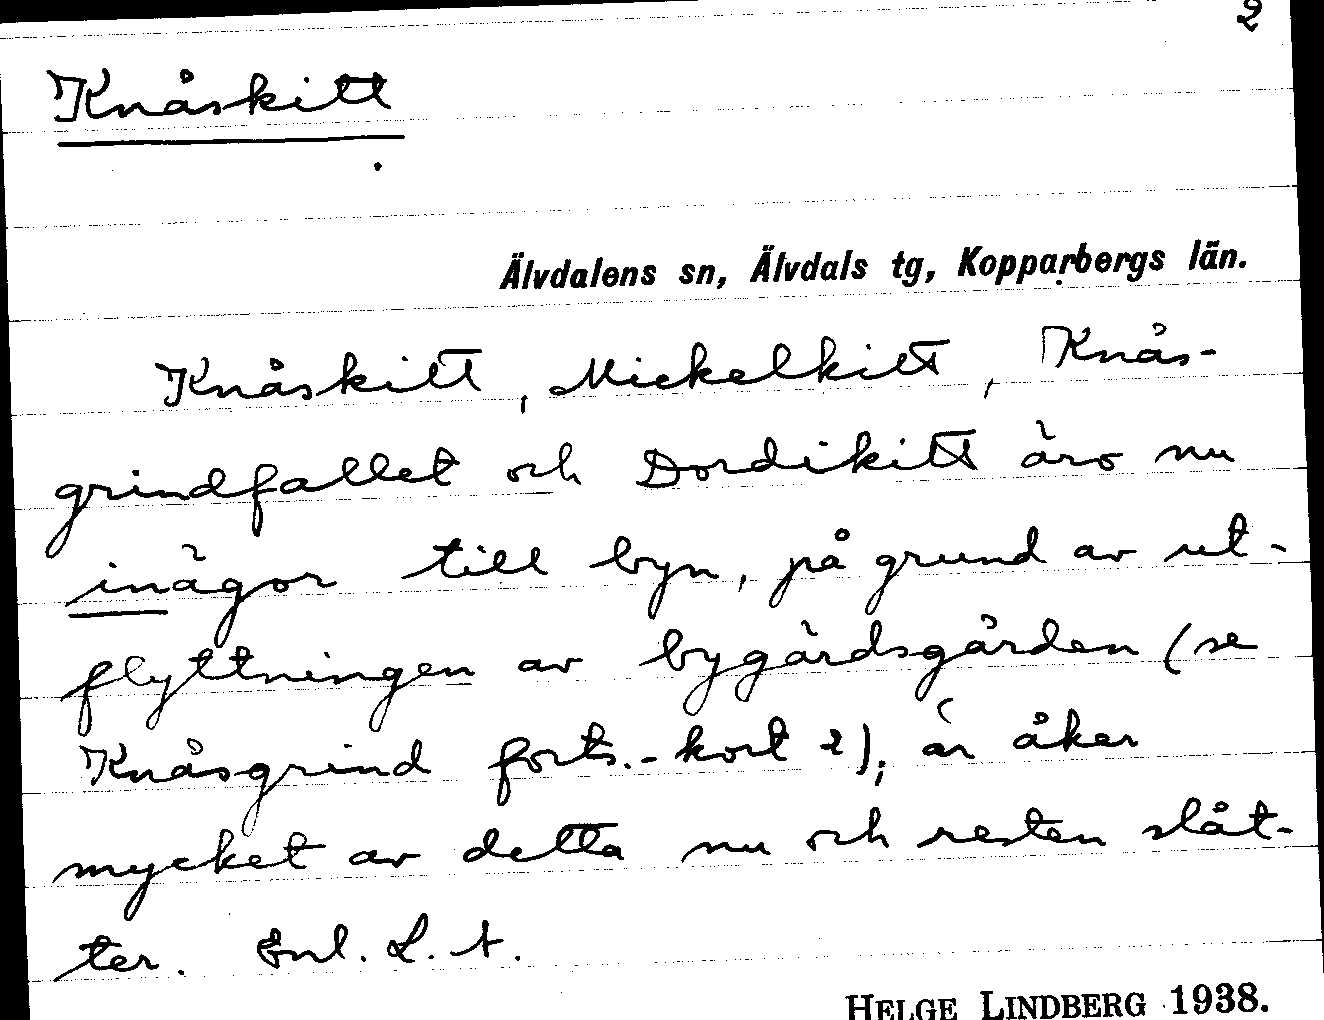 2
Knåskitt
Älvdalens sn, Älvdals tg, Kopparbergs län.
Knåskitt, Mickelkitt, Knås-
grindfallet och Dordikitt äro nu
inägor till byn, på grund av ut-
flyttningen av bygärdsgården (se
Knåsgrind forts.-kort 2); är åker
mycket av detta nu och resten slåt-
ter. Enl. L. A.
HELGE LINDBERG 1938.